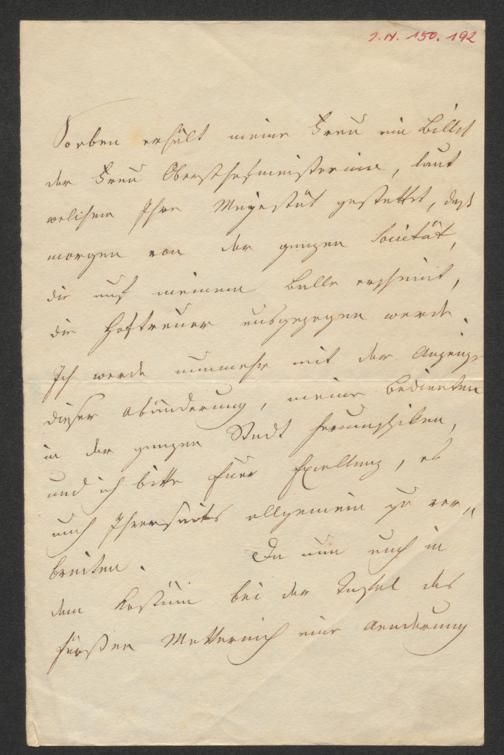 I.N. 150.192
Soeben erhält meine Frau ein Billet
der Frau Obersthofmeisterinn, laut
welchem Ihre Majestät gestattet, daß
morgen von der ganzen Societät,
die auf meinem Balle erscheint,
die Hoftrauer ausgezogen werde.
Ich werde nunmehr mit der Anzeige
dieser Abänderung, meine Bedienten
in der ganzen Stadt herumschiken,
und ich bitte Euer Excellenz, es
auch Ihrerseits allgemein zu ver„
breiten. Da nun auch in
dem Kostüm bei der Tafel des
Fürsten Metternich eine Aenderung